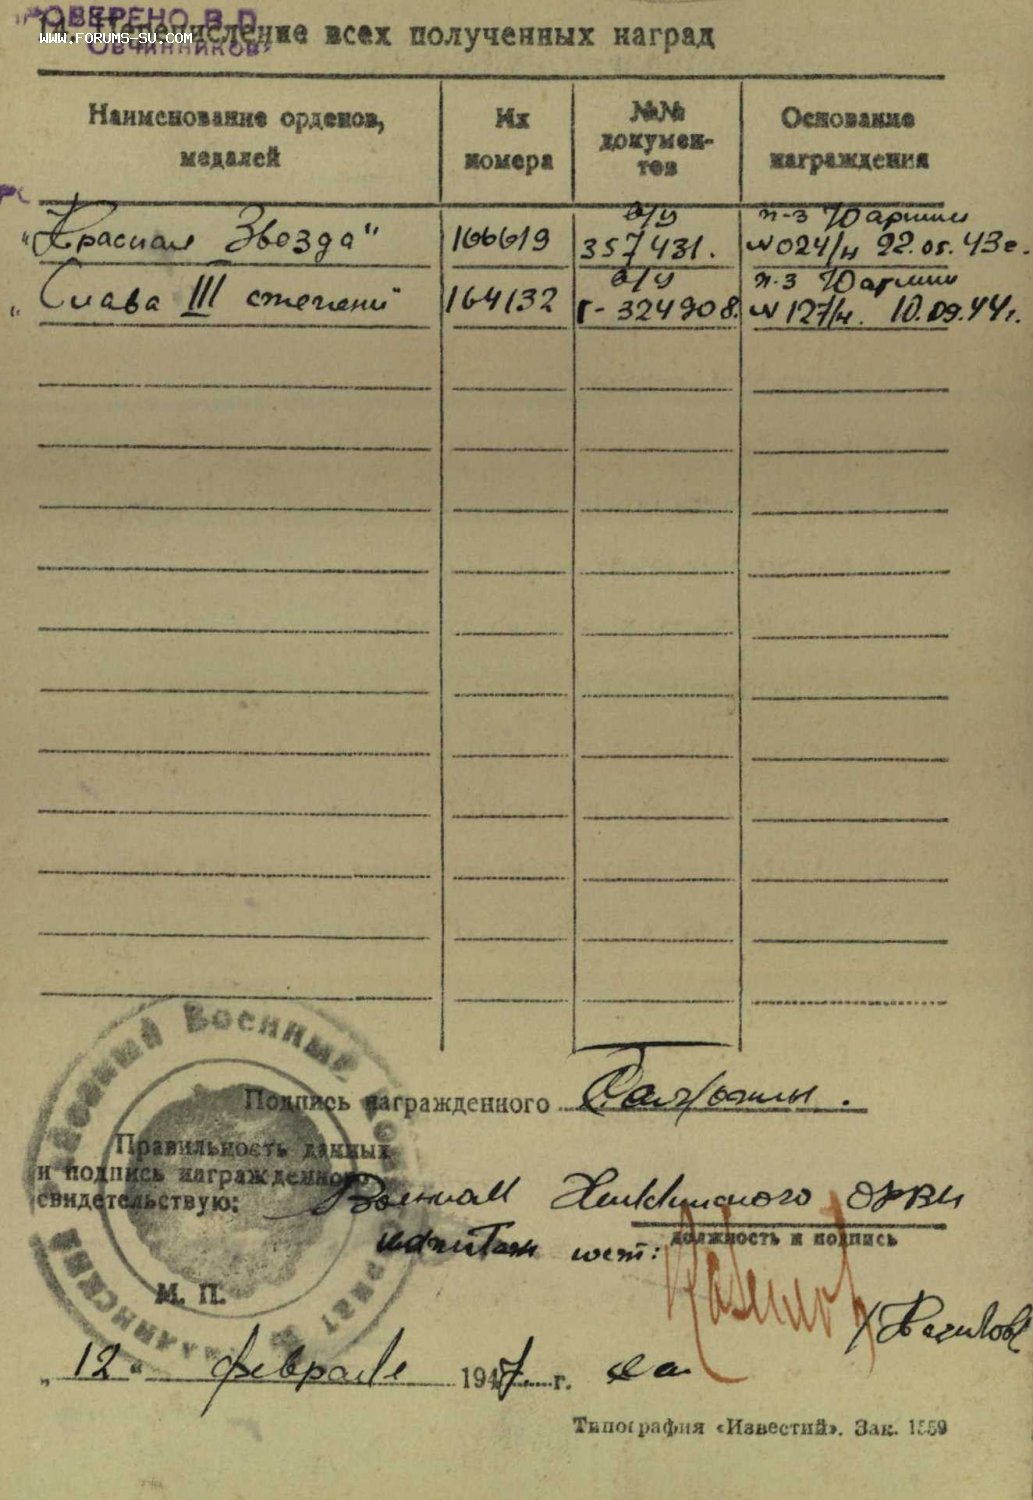 ПРОВЕРЕНО В.Р.
ОВЧИННИКОВ
WWW.FORUMS-SU.COM
14. Перечисление всех полученных наград
Наименование орденов, медалей
Их номера
№№ документов
Основание награждения
"Красная Звезда" 166619 о/у 357431. п-з Юармии № 024/н 22.05.43г.
"Слава III степени" 164132 о/у Г-324908. п.з Юармии № 127/н. 10.09.44г.
Подпись награжденного
Правильность данных
и подпись награжденного
свидетельствую:
ОРВК
должность и подпись
капитан юст:
М. П.
"12" февраля 1947 г.
Типография «Известий». Зак. 1559